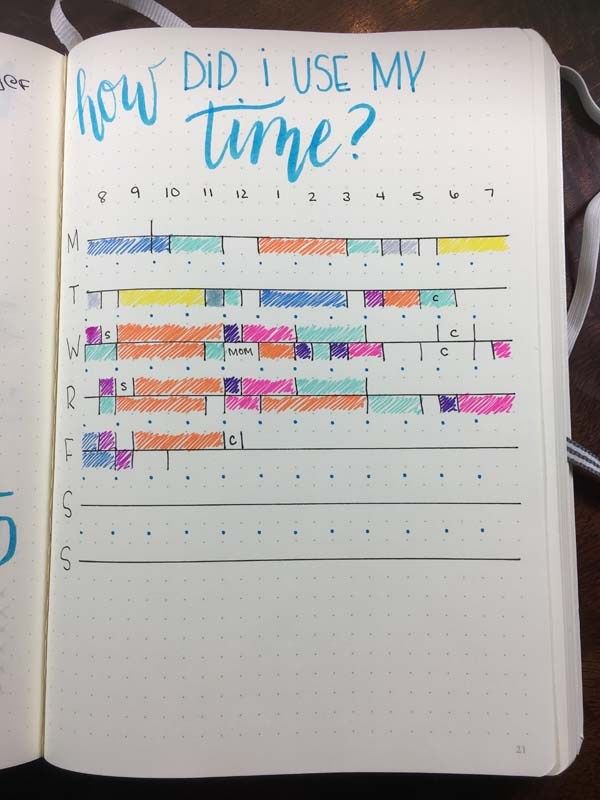 how DiD i USE MY
time?
8 9 10 11 12 1 2 3 4 5 6 7
M
T C
S C
W MOM C
S
R
C
F
S
S
21